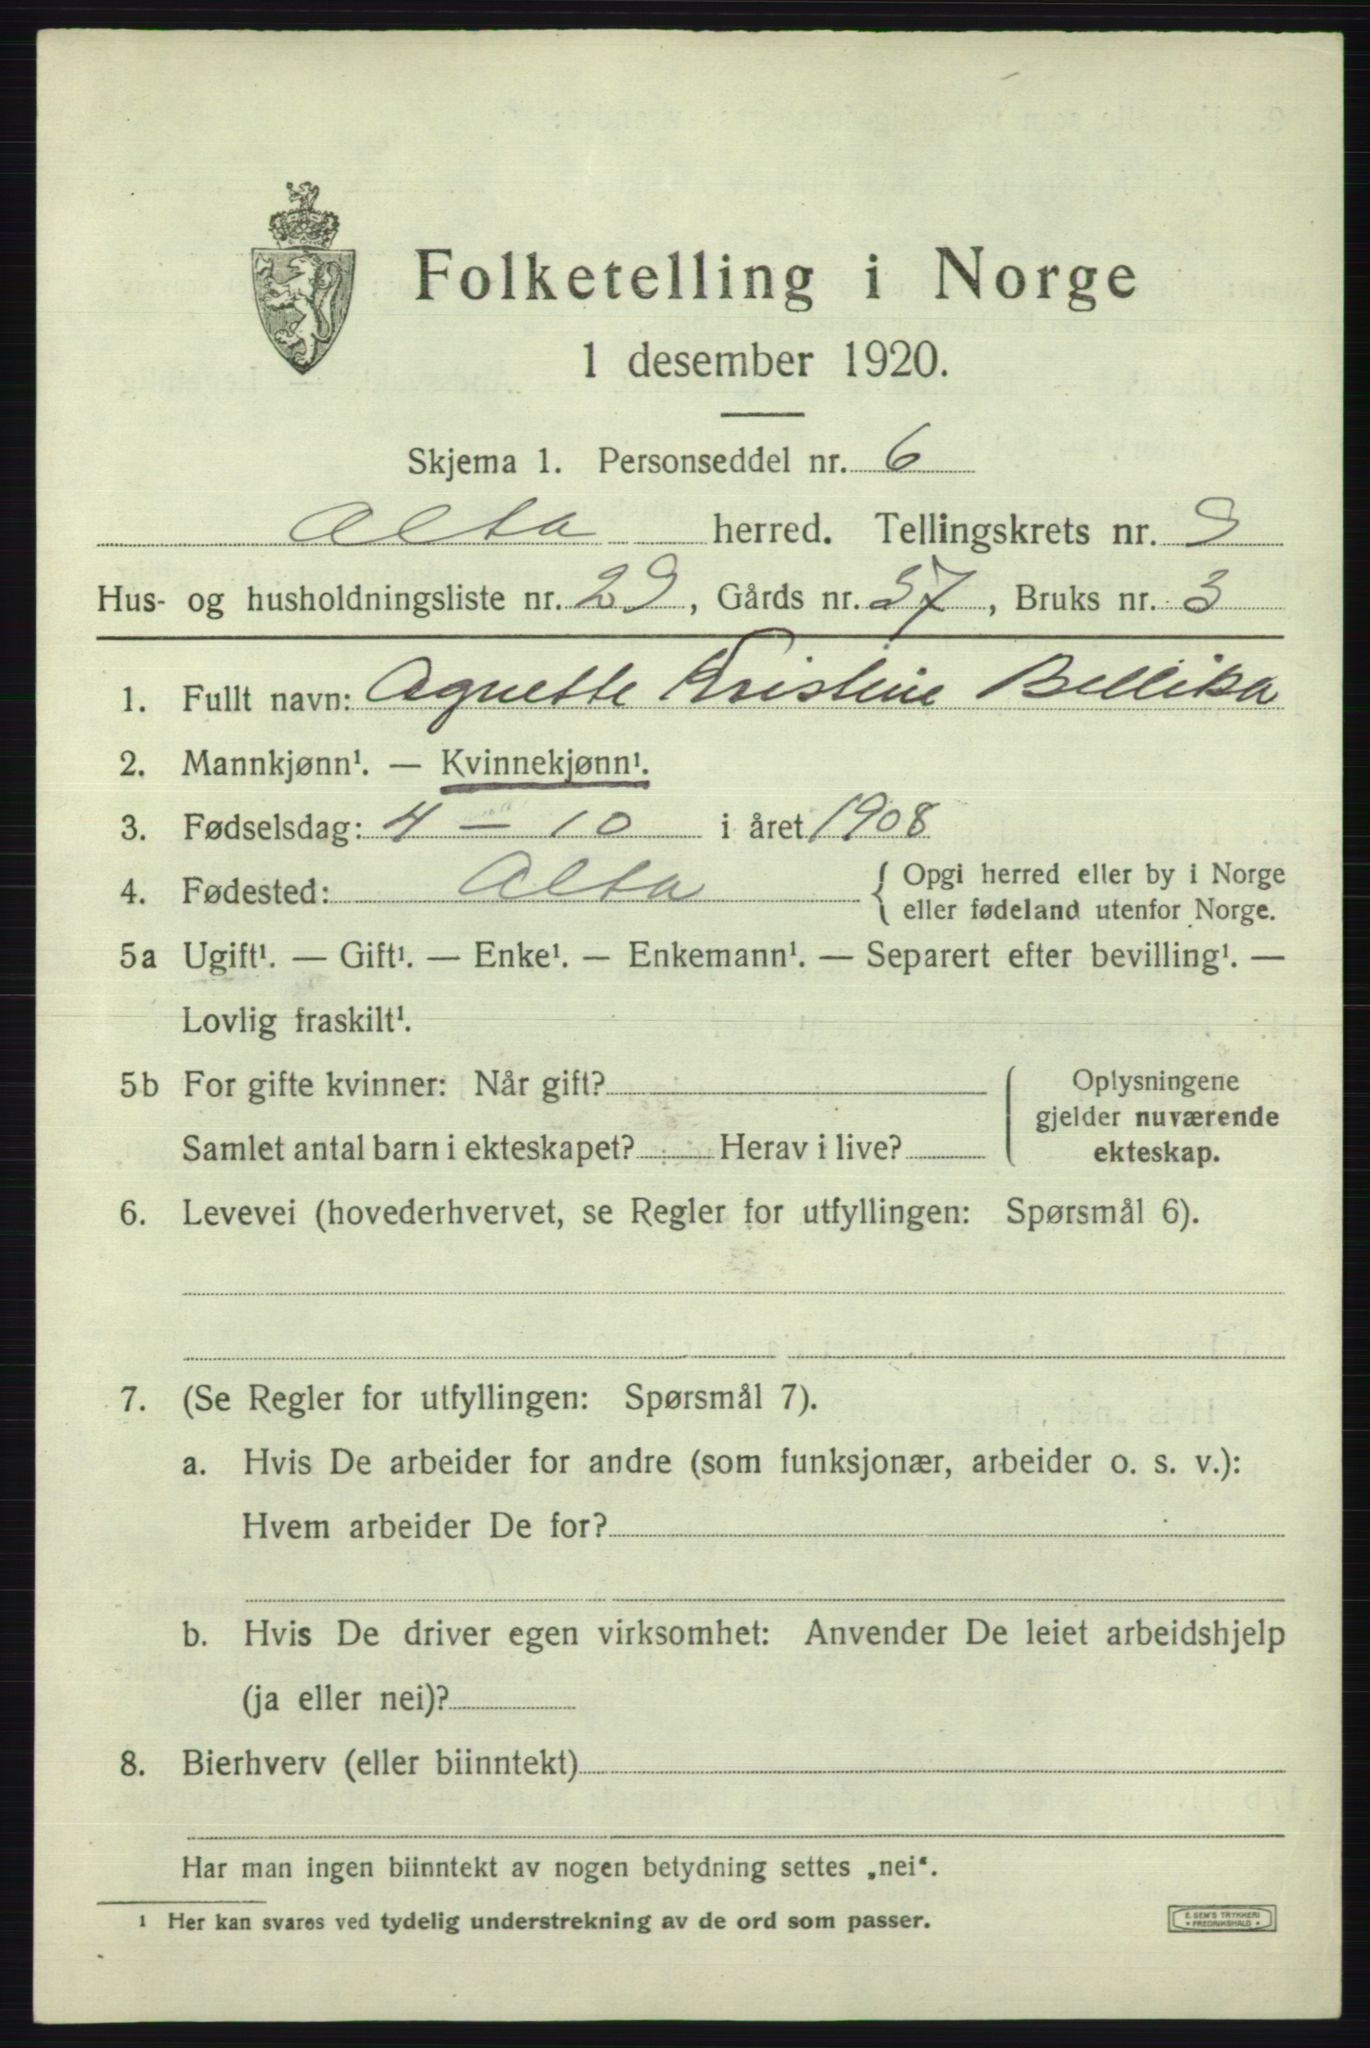 Folketelling i Norge
1 desember 1920.
Skjema 1. Personseddel nr. 6
Alta herred. Tellingskrets nr. 9
Hus- og husholdningsliste nr. 29, Gårds nr. 37, Bruks nr. 3
1. Fullt navn: Agnette Kristine Bellika
2. Mannkjønn¹. — Kvinnekjønn¹.
3. Fødselsdag: 4 – 10 i året 1908
4. Fødested: Alta { Opgi herred eller by i Norge
eller fødeland utenfor Norge.
5a Ugift¹. — Gift¹. — Enke¹. — Enkemann¹. — Separert efter bevilling¹. —
Lovlig fraskilt¹.
5b For gifte kvinner: Når gift?
Samlet antal barn i ekteskapet? Herav i live?
Oplysningene
gjelder nuværende
ekteskap.
6. Levevei (hovederhvervet, se Regler for utfyllingen: Spørsmål 6).
7. (Se Regler for utfyllingen: Spørsmål 7).
a. Hvis De arbeider for andre (som funksjonær, arbeider o. s. v.):
Hvem arbeider De for?
b. Hvis De driver egen virksomhet: Anvender De leiet arbeidshjelp
(ja eller nei)?
8. Bierhverv (eller biinntekt)
Har man ingen biinntekt av nogen betydning settes „nei“.
¹ Her kan svares ved tydelig understrekning av de ord som passer.
E. SEM'S TRYKKERI
• FREDRIKSHALD •